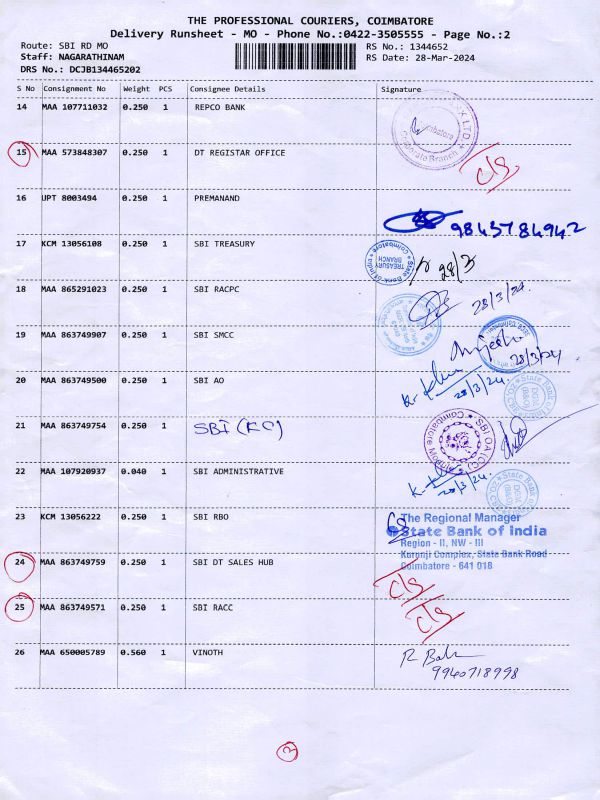 THE PROFESSIONAL COURIERS, COIMBATORE
Delivery Runsheet - MO - Phone No.:0422-3505555 - Page No.:2
Route: SBI RD MO
RS No.: 1344652
Staff: NAGARATHINAM
RS Date: 28-Mar-2024
DRS No.: DCJB134465202
S No Consignment No Weight PCS Consignee Details Signature
14 MAA 107711032 0.250 1 REPCO BANK
Corporate Branch
15 MAA 573848307 0.250 1 DT REGISTAR OFFICE
C/S
16 UPT 8003494 0.250 1 PREMANAND
9843784942
17 KCM 13056108 0.250 1 SBI TREASURY
State Bank of India
TREASURY BRANCH
Coimbatore
28/3
18 MAA 865291023 0.250 1 SBI RACPC
28/3/24
19 MAA 863749907 0.250 1 SBI SMCC
28/3/24
20 MAA 863749500 0.250 1 SBI AO
28/3/24
State Bank of India
21 MAA 863749754 0.250 1 SBI
SBI OA
Coimbatore Module
22 MAA 107920937 0.040 1 SBI ADMINISTRATIVE
28/3/24
State Bank
23 KCM 13056222 0.250 1 SBI RBO
The Regional Manager
State Bank of India
Region - II, NW - III
Kuronji Complex, State Bank Road
Coimbatore - 641 018
24 MAA 863749759 0.250 1 SBI DT SALES HUB
C/S
25 MAA 863749571 0.250 1 SBI RACC
C/S
26 MAA 650005789 0.560 1 VINOTH
9940718998
2